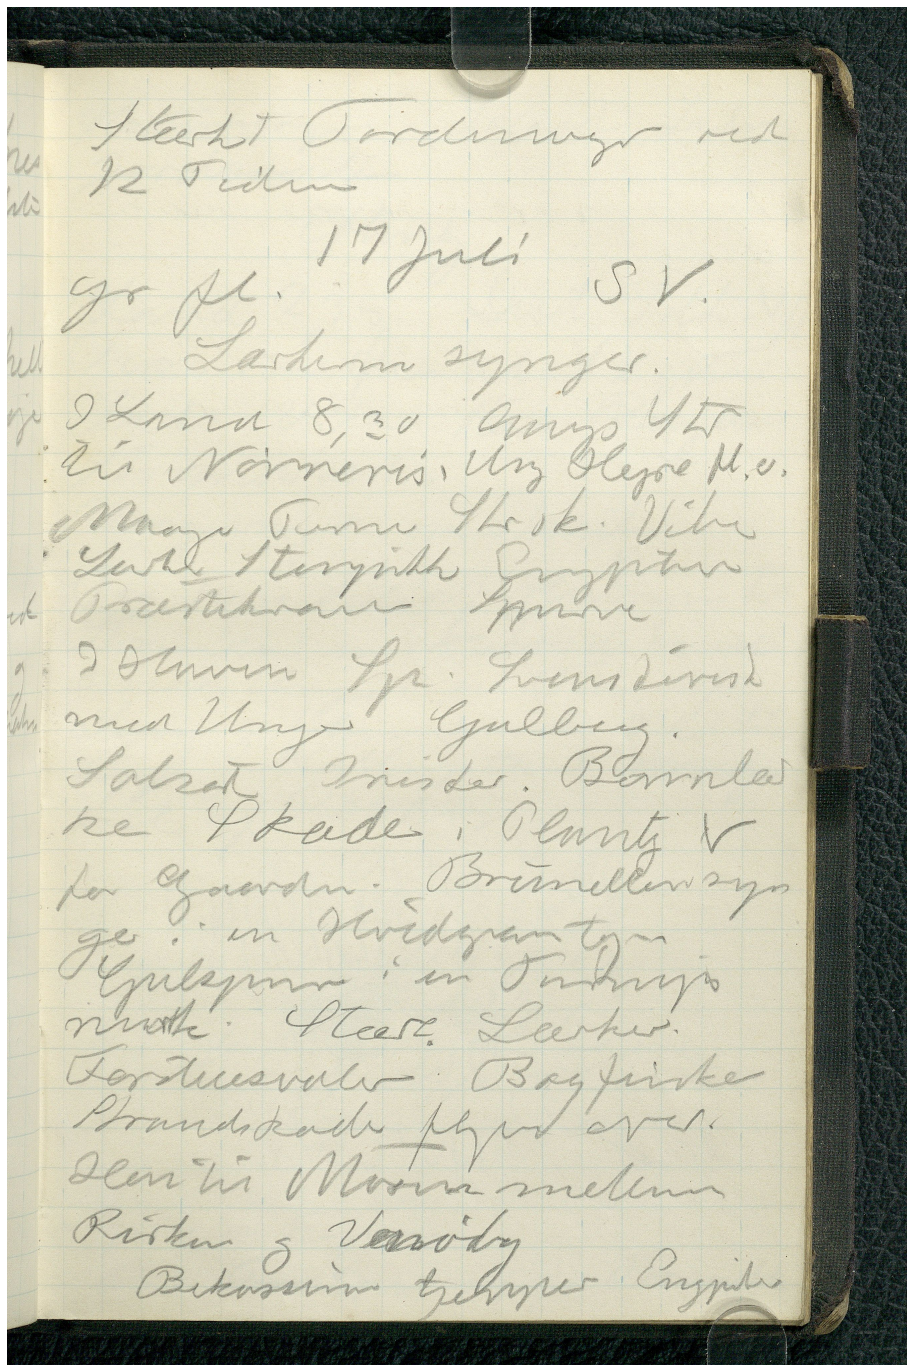 Stærkt Tordenvejr ved
12 Tiden
17 Juli
Gr fl. SV.
Lærkerne synger.
I Land 8,30 Str
til Nørrerevs. Ung Hejre fl. o.
Maage Terne Str sk. Vibe
Lærke Stenpikker Engpiber
Præstekrave Spurve
I Haven Sp. Svenskirisk
med Unger Gulbug.
Solsort Irisker. Bomlær
ke Skade i Plantg V
for Gaarden. Brunellen syn
ger i en Hvidgran
Gulspurv i en Turnips
mark. Stære. Lærker.
Forstuesvaler Bogfinke
Strandskade flyver over.
Hen til Mosen mellem
Kirken og Venöby
Bekassinen tjepper Engpiber